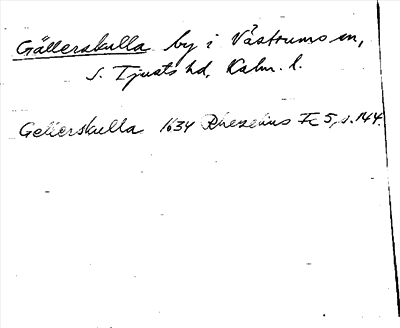 Gällerskulla by i Västrums sn,
S. Tjusts hd, Kalm. l.
Gellerskulla 1634 Rhezelius Fc 5, s. 144.